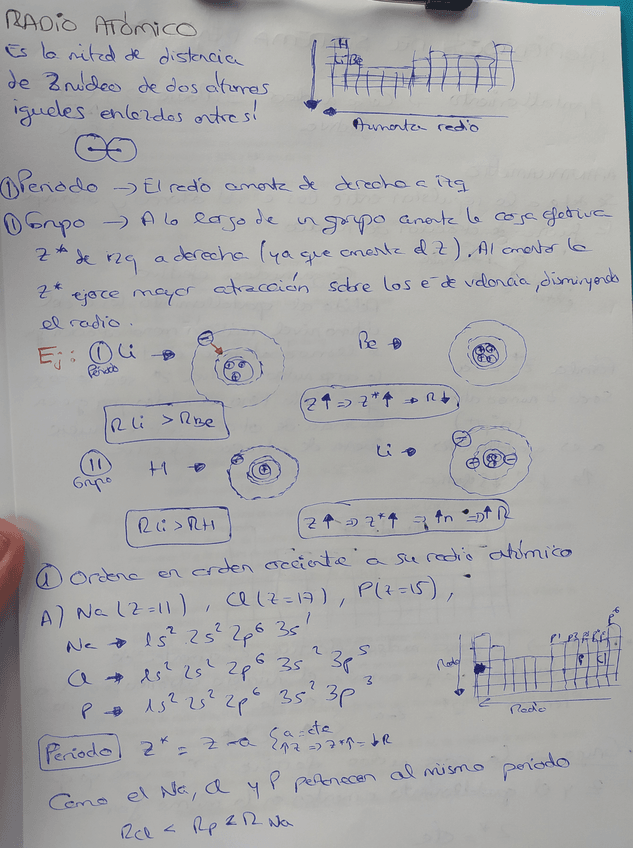 RADIO ATÓMICO
Es la mitad de distancia
de 2 núcleo de dos átomos
iguales enlazdos entre sí
H
Li Be
Aumenta radio
① Periodo → El radio amenta de derecha a izq
⑪ Grupo → A lo largo de un grupo amenta la carga efectiva
Z* de izq a derecha (ya que amenta el Z). Al amentar la
Z* ejerce mayor atracción sobre los e⁻ de valencia, disminyendo
el radio.
Ej: Ⓘ Li →
Periodo
Be →
Z↑ ⇒ Z*↑ ⇒ R↓
R Li > R Be
⑪ H →
Grupo
Li →
R Li > R H
Z↑ ⇒ Z*↑ ⇒ ↑n ⇒ ↑R
① Ordena en orden creciente a su radio atómico
A) Na (Z=11), Cl (Z=17), P (Z=15),
Na → 1s² 2s² 2p⁶ 3s¹
Cl → 1s² 2s² 2p⁶ 3s² 3p⁵
P → 1s² 2s² 2p⁶ 3s² 3p³
Radio
P Cl
p⁶
Radio
Periodo Z* = Z - a {a = cte
↑Z ⇒ Z*↑ = ↓R
Como el Na, Cl y P pertenecen al mismo periodo
R Cl < R P < R Na